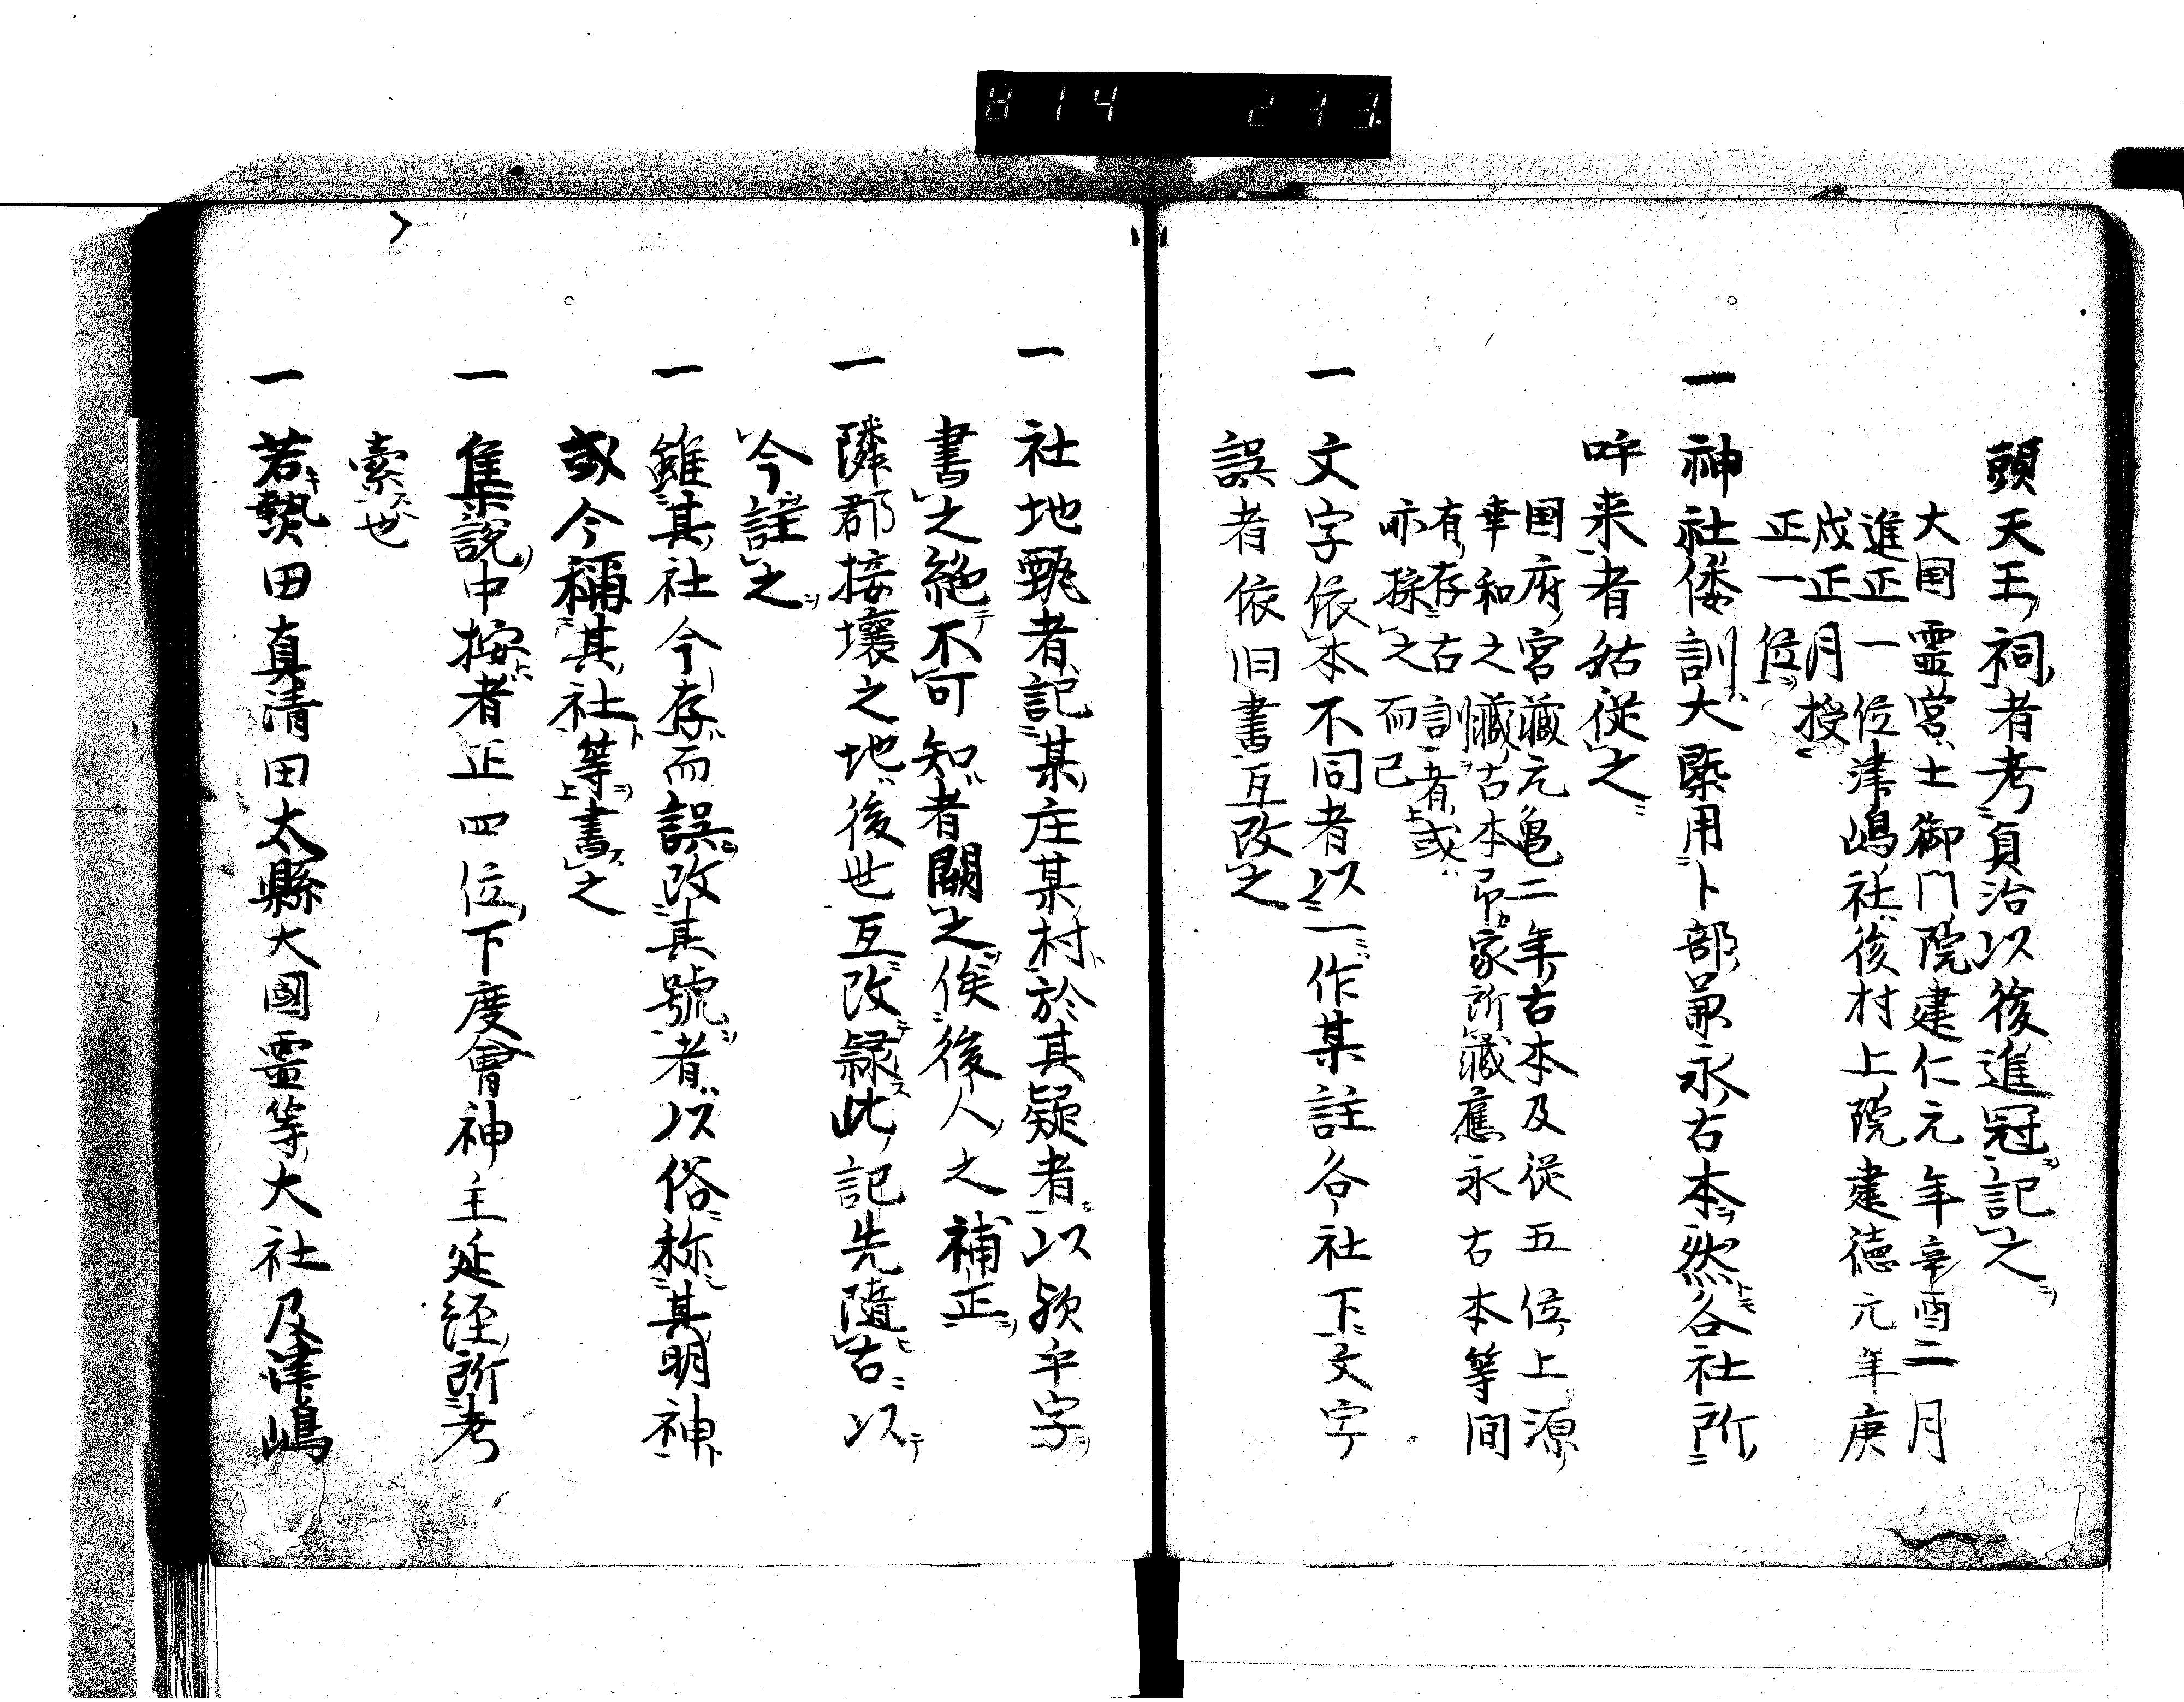 814 233
頭天王祠者考貞治以後進冠記之
大国霊宮土御門院建仁元年辛酉二月
進正一位津嶋社後村上院建徳元年庚
戌正月授
正一位
一 神社倭訓大槩用卜部兼永古本然各社所
呼来者姑従之
国府宮蔵元亀二年古本及従五位上源
幸和之蔵古本吊家所蔵應永古本等間
有存古訓者或
亦採之而已
一 文字依本不同者以一作某註各社下文字
誤者依旧書互改之
一 社地甄者記某庄某村於其疑者以欤乎字
書之絶不可知者闕之俟後人之補正
一 隣郡接壤之地後世互改録此記先隨古以
今註之
一 雖其社今存而誤改其號者以俗称其明神
或今稱其社等書之
一 集説中按者正四位下度會神主延経所考
索也
一 若熱田真清田太縣大國霊等大社及津嶋